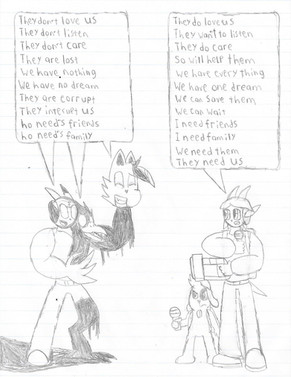 They don't love us
They don't listen
They don't care
They are lost
We have nothing
We have no dream
They are corrupt
They interupt us
ho need's friends
ho need's family
They do love us
They want to listen
They do care
So will help them
We have every thing
We have one dream
We can save them
We can wait
I need friends
I need family
We need them
They need us